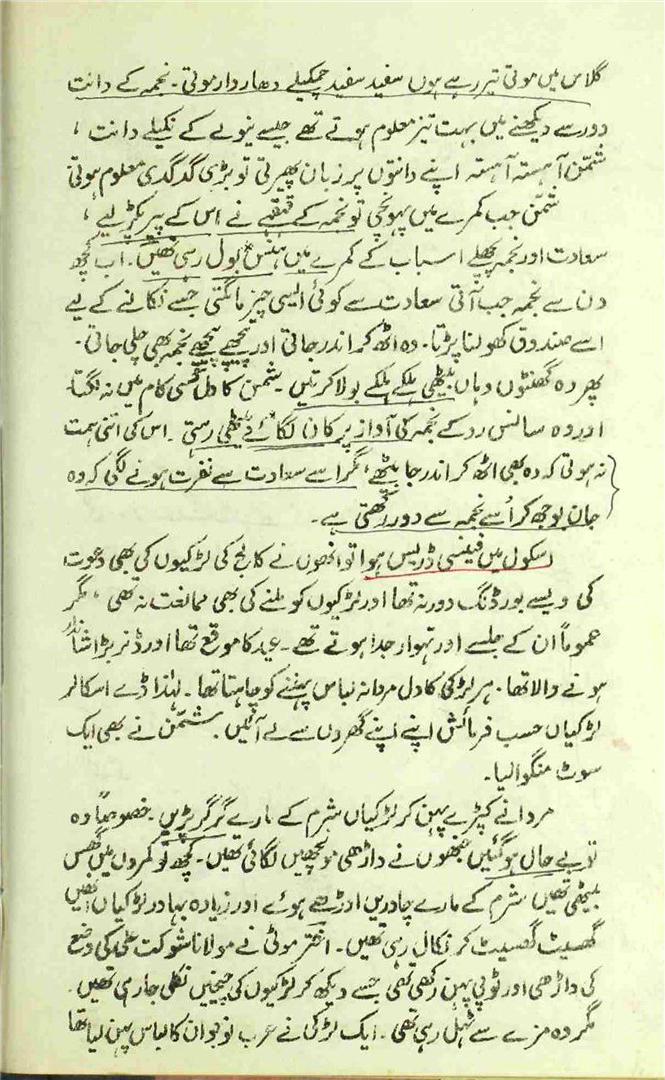 گلاس میں موتی تیر رہے ہوں سفید سفید چمکیلے دھاردار موتی۔ نجمہ کے دانت
دور سے دیکھنے میں بہت تیز معلوم ہوتے تھے جیسے نیولے کے نکیلے دانت ،
شمّن آہستہ آہستہ اپنے دانتوں پر زبان پھیرتی تو بڑی گدگدی معلوم ہوتی
شمّن جب کمرے میں پہونچی تو نجمہ کے قہقہے نے اس کے پیر پکڑ لیے ،
سعادت اور نجمہ پچھلے اسباب کے کمرے میں ہنس بول رہی تھیں۔ اب کچھ
دن سے نجمہ جب آتی سعادت سے کوئی ایسی چیز مانگتی جسے نکالنے کے لیے
اسے صندوق کھولنا پڑتا۔ وہ اٹھ کر اندر جاتی اور پیچھے پیچھے نجمہ بھی چلی جاتی۔
پھر وہ گھنٹوں وہاں بیٹھی ہلکے ہلکے بولا کرتیں۔ شمن کا دل کسی کام میں نہ لگتا۔
اور وہ سانس روکے نجمہ کی آواز پر کان لگائے بیٹھی رہتی۔ اس کی اتنی ہمت
نہ ہوتی کہ وہ بھی اٹھ کر اندر جا بیٹھے، مگر اسے سعادت سے نفرت ہونے لگی کہ وہ
جان بوجھ کر اُسے نجمہ سے دور رکھتی ہے۔
اسکول میں فینسی ڈریس ہوا تو انھوں نے کالج کی لڑکیوں کی بھی دعوت
کی ویسے بورڈنگ دور نہ تھا اور لڑکیوں کو ملنے کی بھی ممانعت نہ تھی ، مگر
عموماً ان کے جلسے اور تہوار جدا ہوتے تھے۔ عید کا موقع تھا اور ڈنر بڑا شاندار
ہونے والا تھا۔ ہر لڑکی کا دل مردانہ لباس پہننے کو چاہتا تھا۔ لہٰذا ڈے اسکالر
لڑکیاں حسب فرمائش اپنے اپنے گھروں سے لے آئیں۔ شمّن نے بھی ایک
سوٹ منگوا لیا۔
مردانے کپڑے پہن کر لڑکیاں شرم کے مارے گر گر پڑیں۔ خصوصاً وہ
تو بے حال ہو گئیں جنھوں نے داڑھی مونچھیں لگائی تھیں۔ کچھ تو کمروں میں گھس
بیٹھی تھیں شرم کے مارے چادریں اوڑھے ہوئے اور زیادہ بہادر لڑکیاں انھیں
گھسیٹ گھسیٹ کر نکال رہی تھیں۔ اختر موٹی نے مولانا شوکت علی کی وضع
کی داڑھی اور ٹوپی پہن رکھی تھی جسے دیکھ کر لڑکیوں کی چیخیں نکلی جا رہی تھیں۔
مگر وہ مزے سے ٹہل رہی تھی۔ ایک لڑکی نے عرب نوجوان کا لباس پہن لیا تھا